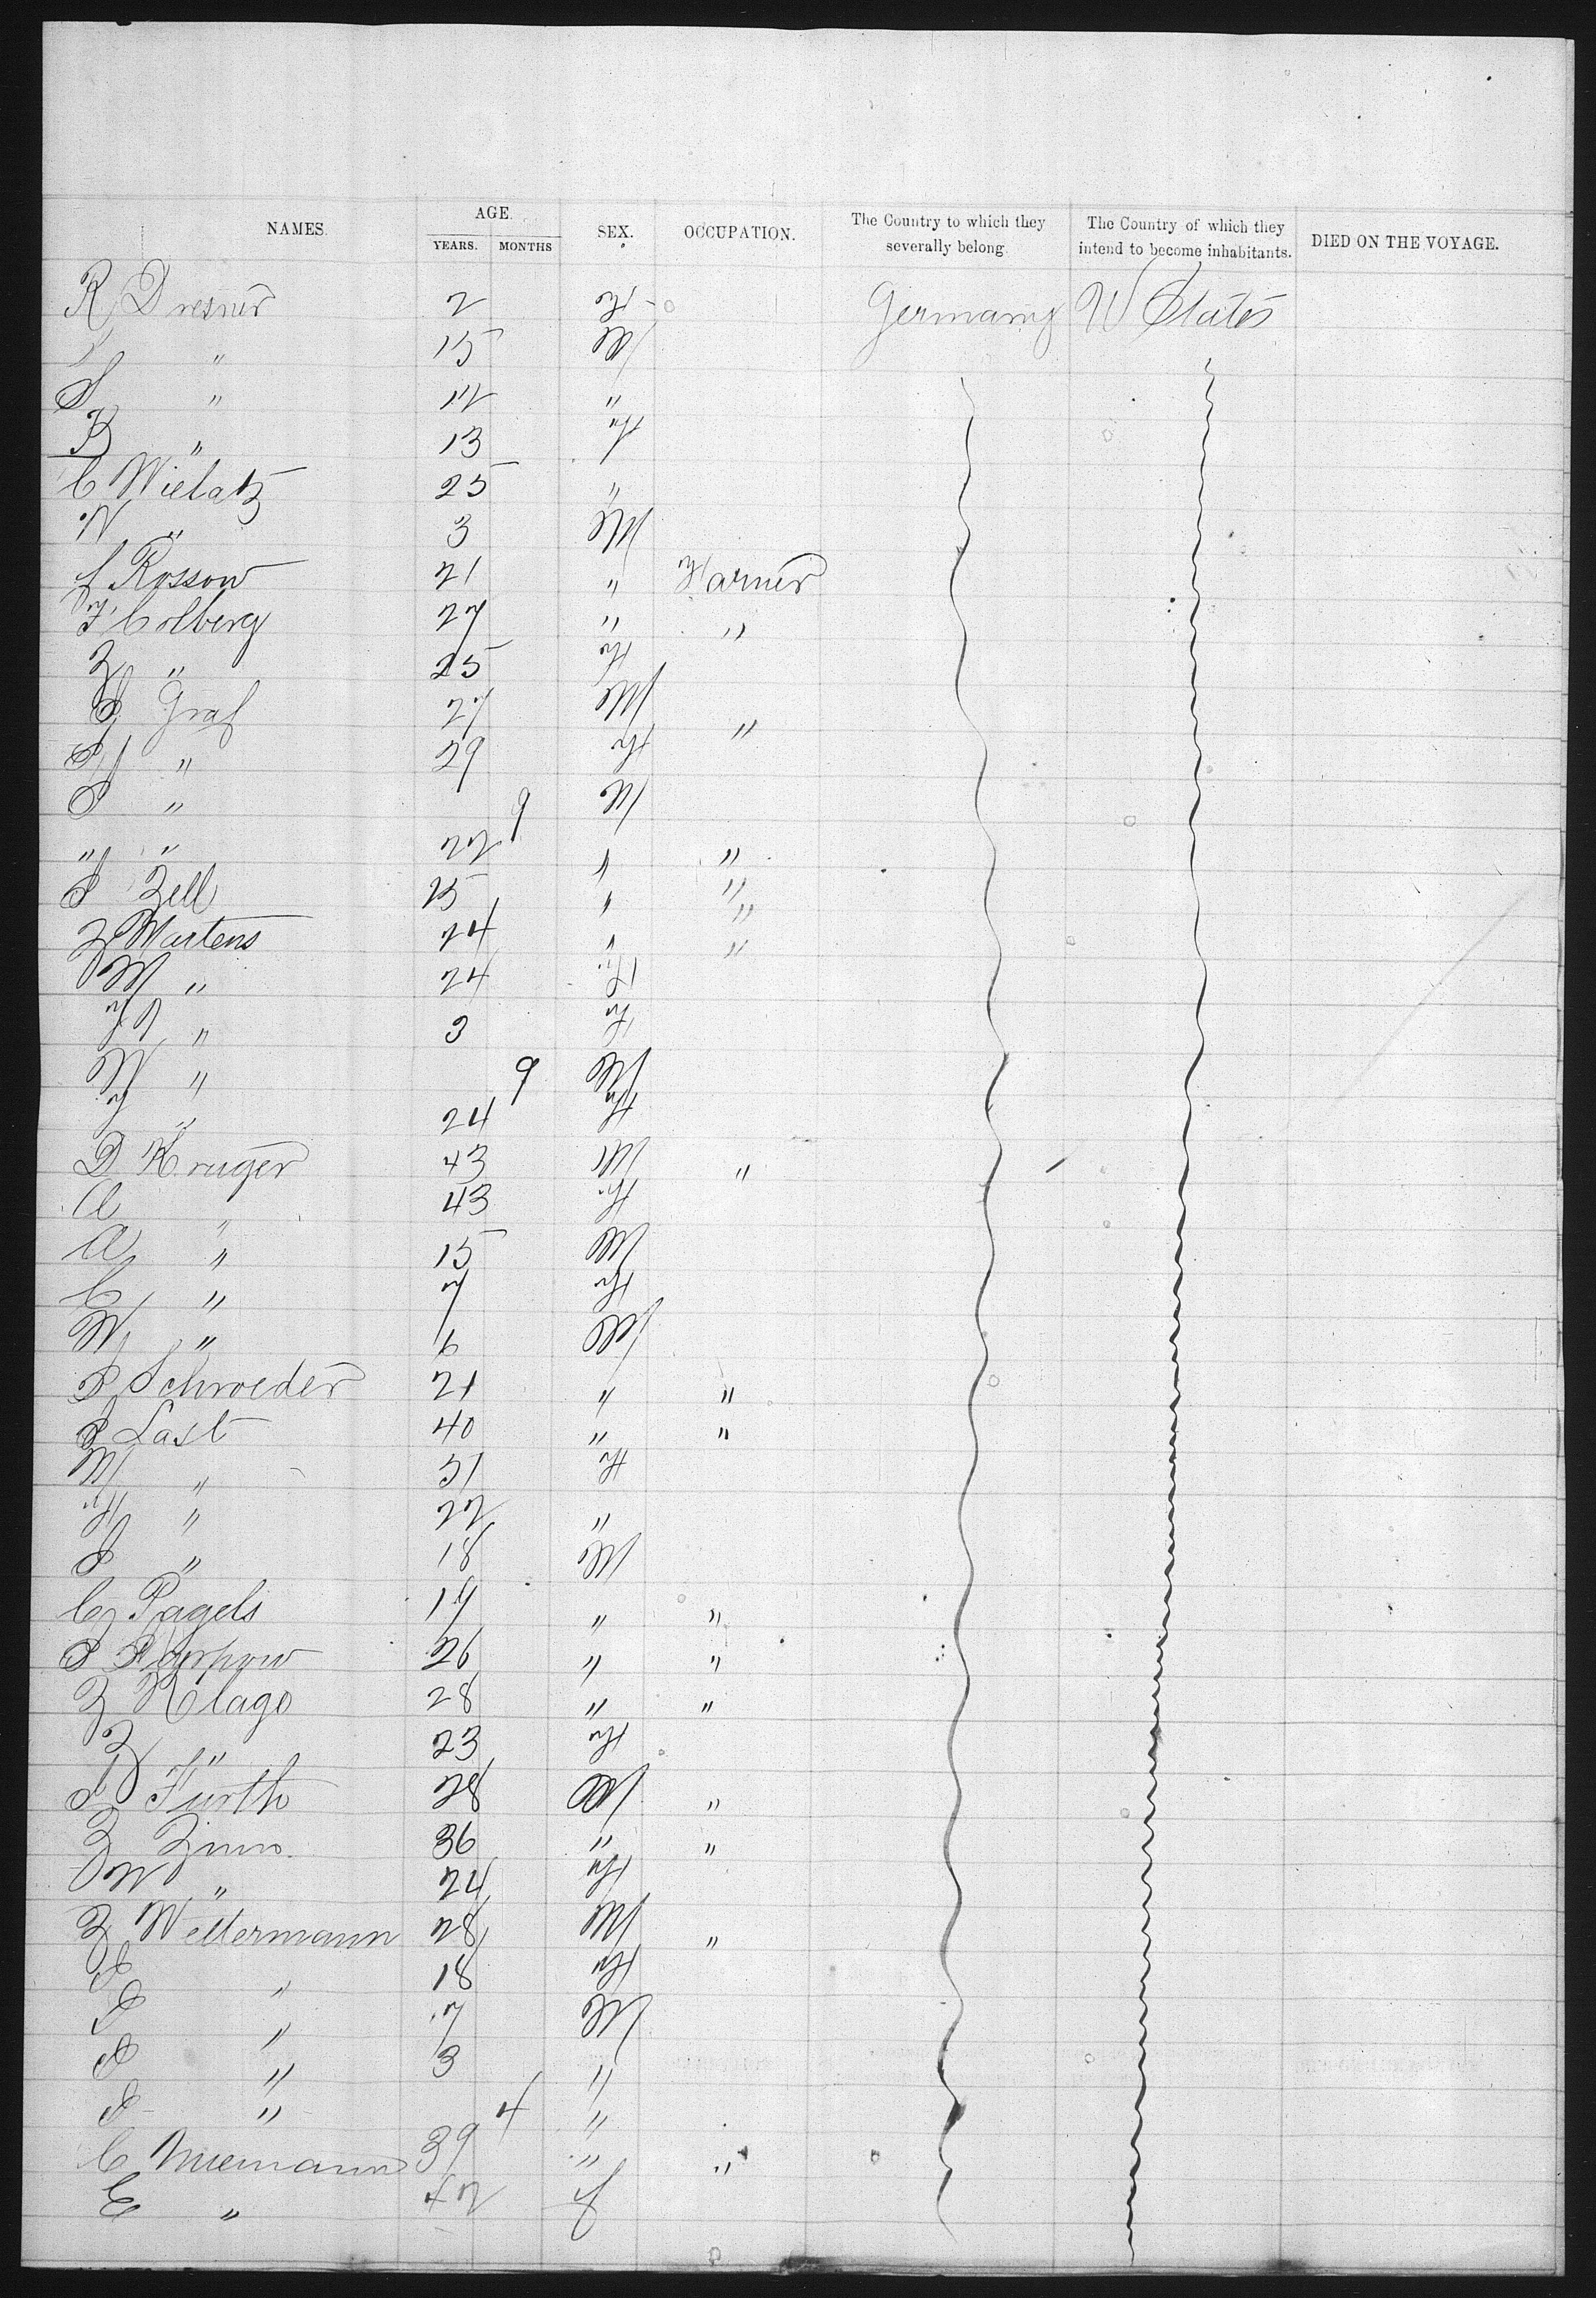 NAMES. AGE. YEARS. MONTHS SEX. OCCUPATION. The Country to which they severally belong. The Country of which they intend to become inhabitants. DIED ON THE VOYAGE.
R Dresner 2 F Germany U States
" 15 M
S " 11 "
B " 13 F
C Wielatz 25 "
N " 3 M
f Rossow 21 " Farmer
F Colberg 27 " "
Z " 25 F
S Graf 27 M "
" 29 F
S " 9 M
" " 22 " "
S Zell 25 " "
"
Z Martens 24 " "
M " 24 F
" 3 F
M " 9 M
F " 24 F
D Kruger 43 M "
A " 43 F
A " 15 M
C " 7 F
W " 6 M
S Schroeder 21 " "
S Last 40 " "
M " 51 F
H " 22 "
S " 18 M
C Pagels 17 " "
S 26 " "
Z Klago 28 " "
Z " 23 F
S Fürth 28 M "
Z Zimo 36 " "
W " 24 F
Z Wettermann 28 M "
S " 18 F
S " 7 M
S " 3 "
S " 4 "
C Niemann 39 " "
E " 42 f